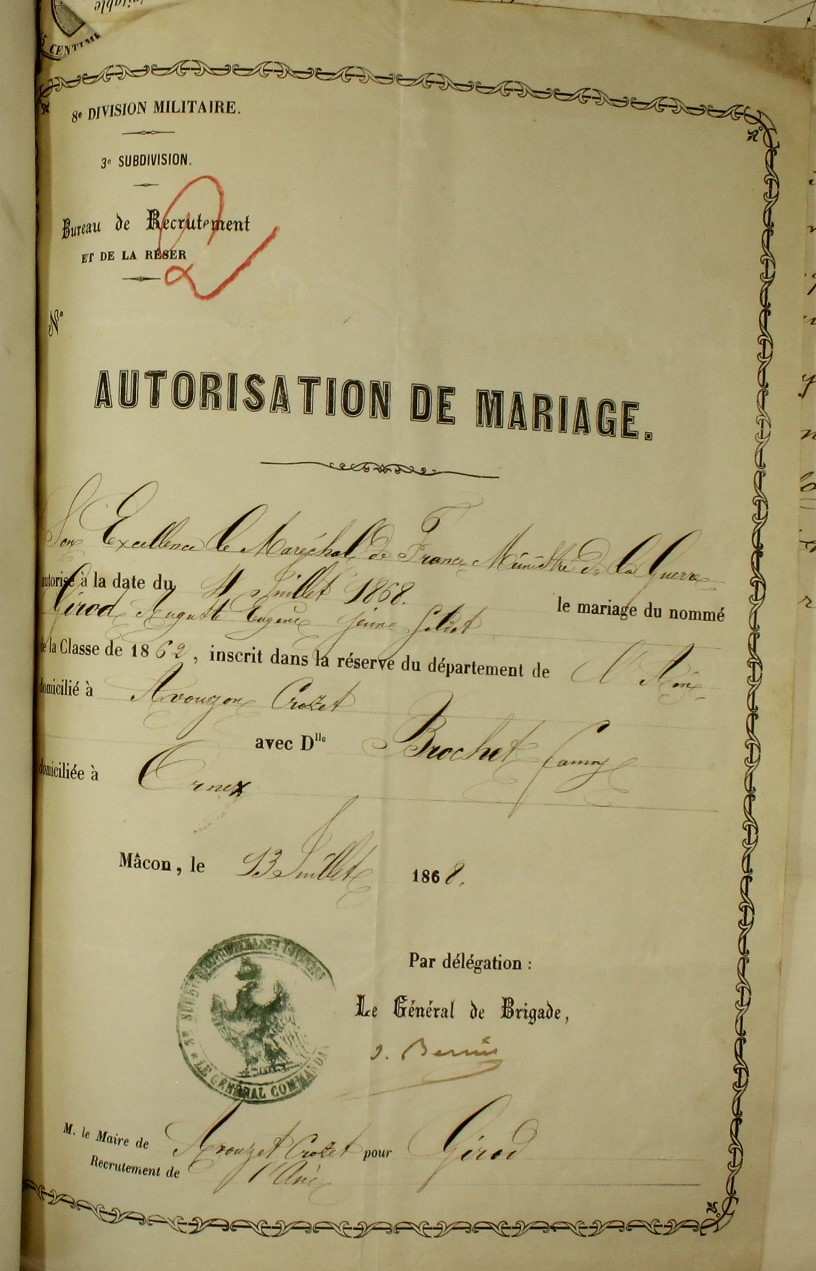 CENTIME
8e DIVISION MILITAIRE.
3e SUBDIVISION.
Bureau de Recrutement
ET DE LA RÉSER
2
N°
AUTORISATION DE MARIAGE.
Son Excellence le Maréchal de France Ministre de la Guerre
autorise à la date du 11 Juillet 1868. le mariage du nommé
Girod Auguste Eugène jeune soldat
de la Classe de 1862, inscrit dans la réserve du département de l'Ain
domicilié à Avouzon Crozet
avec Dlle Brochet Fanny
domiciliée à Ornex
Mâcon, le 13 Juillet 1868.
Par délégation :
Le Général de Brigade,
LE GÉNÉRAL COMMANDA
M. le Maire de Avouzet Crozet pour Girod
Recrutement de l'Ain